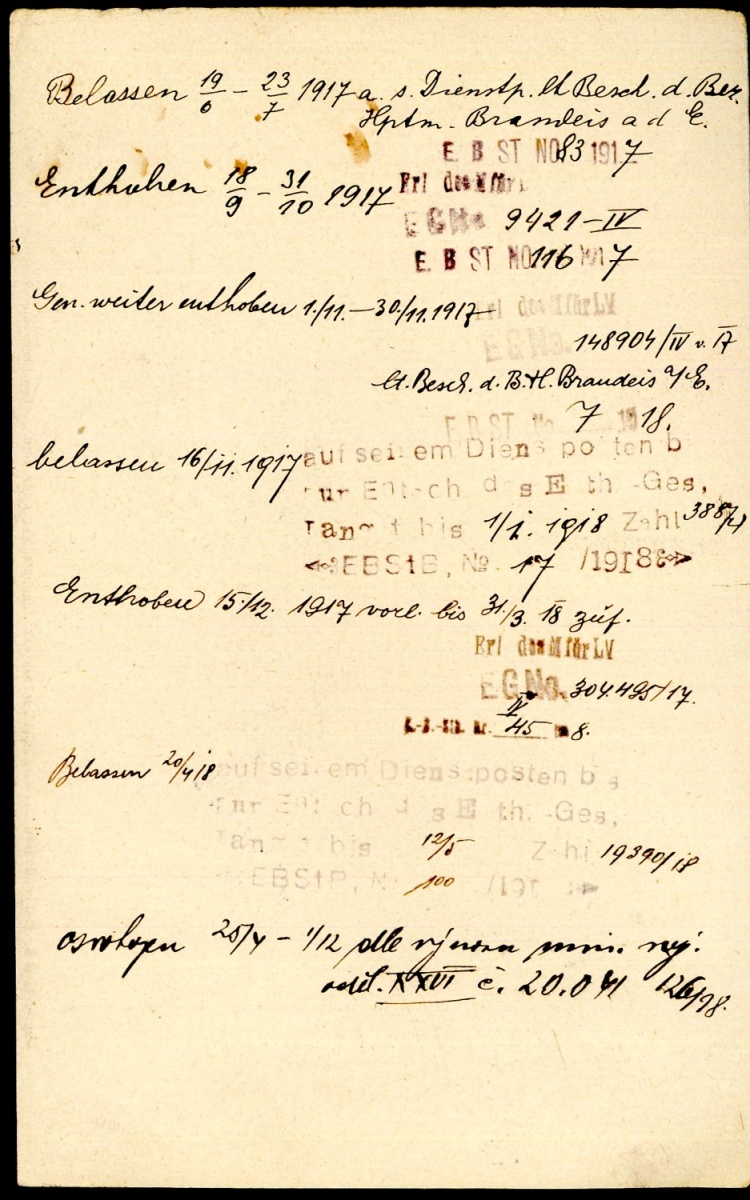 Belassen 19/6 – 23/7 1917 a. s. Dienstp. lt Besch. d. Bez.
Hptm. Brandeis a d E.
E B ST NO 83 1917
Enthoben 18/9 – 31/10 1917
Erl des M für L
EGNo. 9421–IV
E B ST NO 116 1917
Gen. weiter enthoben 1./11. – 30/11. 1917
Erl des M für LV
EGNo. 148904/IV v. 17
lt. Besch. d. B.H. Brandeis a/E.
E B ST No 7 1918.
belassen 16/11. 1917 auf seinem Diensposten b
zur Entsch des Enth.-Ges,
langt bis 1/1. 1918 Zahl
EBStB, No 17 /1918
Enthoben 15./12. 1917 vorl. bis 31./3. 18 zuf.
Erl des M für LV
EGNo. 304.495/17.
IV
45 8.
Belassen 20/4 18 auf seinem Diensposten bis
zur Entsch des Enth.-Ges,
langt bis 12/5 Zahl 19390/18
EBStB, N 100 /191
osvobozen 25/4 – 1/12 dle výnosu min. nej.
odděl. XXVI č. 20.041 126/98.